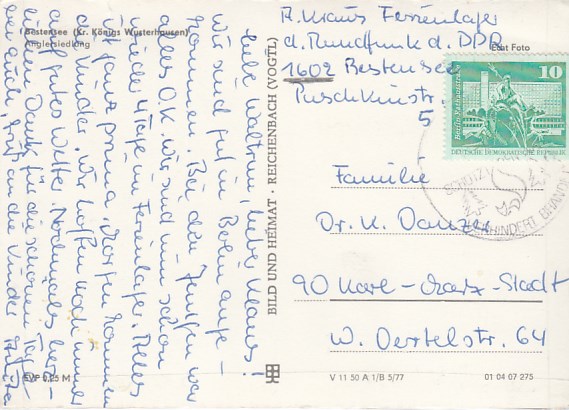 Bestensee (Kr. Königs Wusterhausen)
Anglersiedlung
Liebe Waltm, lieber Klaus!
wir sind gut in Berlin ange-
kommen. Bei den Jungen war
alles O.K. Wir sind nun schon
wieder 4 Tage im Ferienlager. Alles
ist ganz prima. Morgen kommen
die Kinder. Wir hoffen noch immer
auf gutes Wetter. Nochmals herz-
lichen Dank für die schönen Tage
bei euch, Gruß an die Kinder
EVP 0,25 M
BILD UND HEIMAT · REICHENBACH (VOGTL)
A. Klaus Ferienlager
d. Rundfunk d. DDR
Echt Foto
1602 Bestensee
Puschkinstr.
5
10
DEUTSCHE DEMOKRATISCHE REPUBLIK
Familie
Dr. K. Danzer
90 Karl-Marx-Stadt
W. Oertelstr. 64
V 11 50 A 1/B 5/77
01 04 07 275